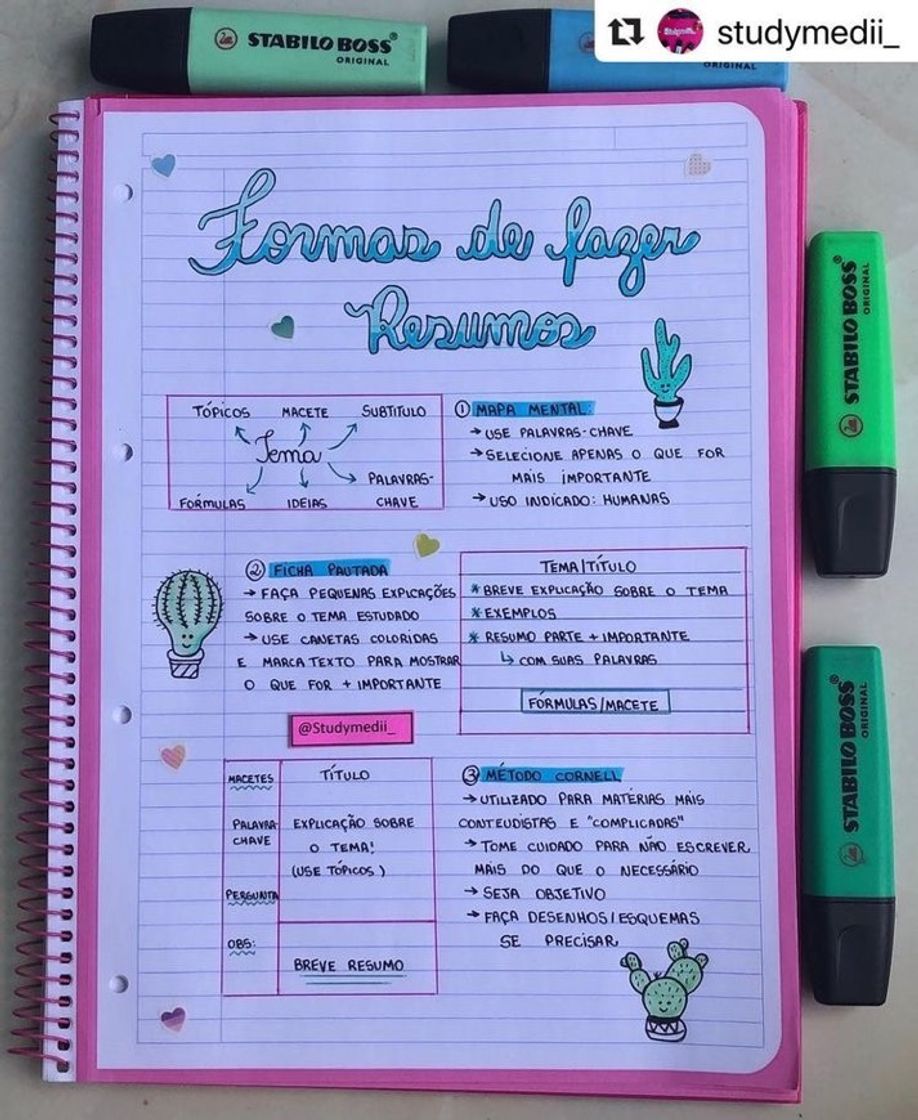 STABILO BOSS®
ORIGINAL
ORIGINAL
studymedii_
Formas de fazer
Resumos
TÓPICOS MACETE SUBTITULO
Tema
PALAVRAS-
FÓRMULAS IDEIAS CHAVE
① MAPA MENTAL:
→ USE PALAVRAS-CHAVE
→ SELECIONE APENAS O QUE FOR
MAIS IMPORTANTE
→ USO INDICADO: HUMANAS
② FICHA PAUTADA
→ FAÇA PEQUENAS EXPLICAÇÕES
SOBRE O TEMA ESTUDADO
→ USE CANETAS COLORIDAS
E MARCA TEXTO PARA MOSTRAR
O QUE FOR + IMPORTANTE
TEMA/TÍTULO
* BREVE EXPLICAÇÃO SOBRE O TEMA
* EXEMPLOS
* RESUMO PARTE + IMPORTANTE
↳ COM SUAS PALAVRAS
FÓRMULAS/MACETE
@Studymedii_
MACETES
PALAVRA-
CHAVE
PERGUNTA
OBS:
TÍTULO
EXPLICAÇÃO SOBRE
O TEMA!
(USE TÓPICOS)
BREVE RESUMO
③ MÉTODO CORNELL
→ UTILIZADO PARA MATÉRIAS MAIS
CONTEUDISTAS E "COMPLICADAS"
→ TOME CUIDADO PARA NÃO ESCREVER
MAIS DO QUE O NECESSÁRIO
→ SEJA OBJETIVO
→ FAÇA DESENHOS/ESQUEMAS
SE PRECISAR
STABILO BOSS®
ORIGINAL
STABILO BOSS®
ORIGINAL